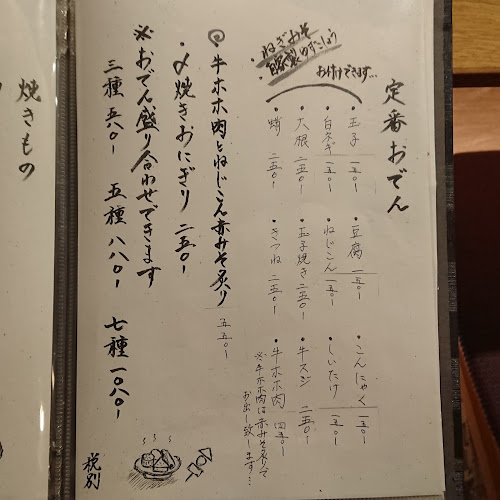 定番おでん
ねぎみそ
自家製ゆずこしょう
お付けできます…
・玉子 一五〇-
・豆腐 一五〇-
・こんにゃく 一五〇-
・白ネギ 一五〇-
・ねじこん 一五〇-
・しいたけ 一五〇-
・大根 二五〇-
・玉子焼き 二五〇-
・牛スジ 二五〇-
・蛸 二五〇-
・きつね 二五〇-
・牛ホホ肉 四五〇-
※牛ホホ肉は赤みそ炙りで
お出し致します…
◎牛ホホ肉とねじこん赤みそ炙り 五五〇-
・〆焼きおにぎり 二五〇-
※おでん盛り合わせできます
三種 五八〇- 五種 八八〇- 七種 一〇八〇-
税別
焼きもの